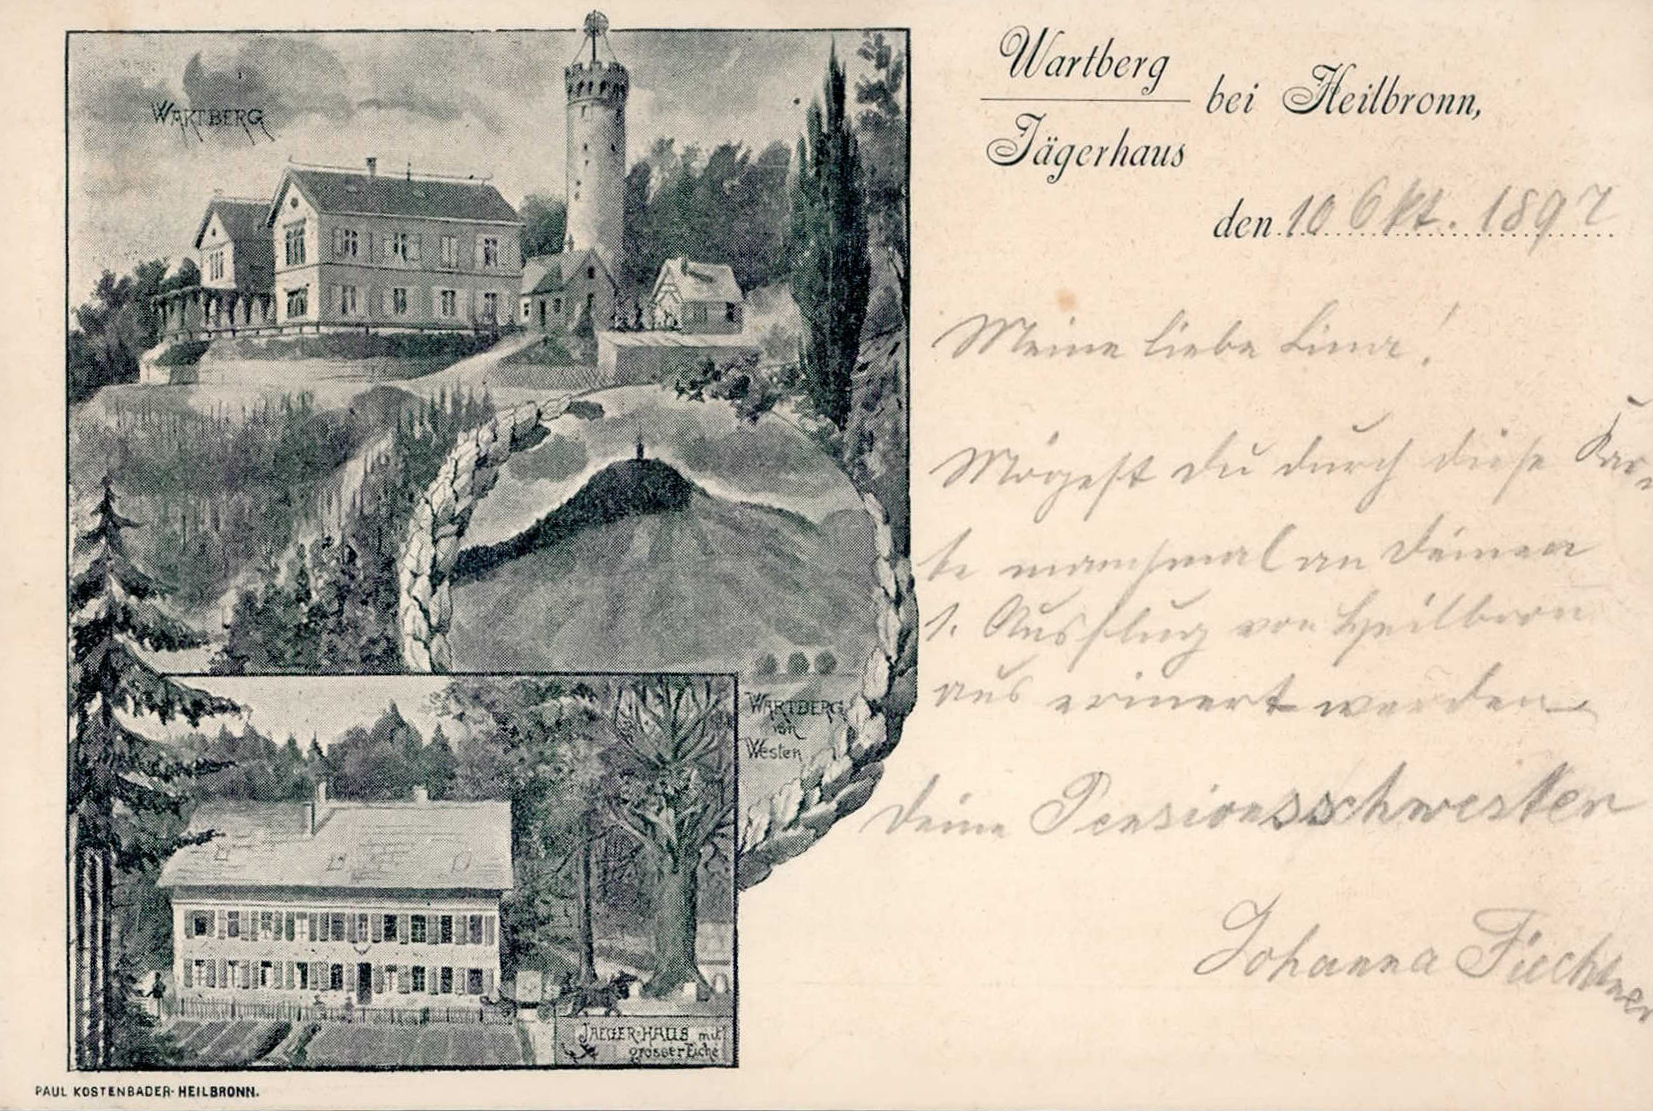 WARTBERG
Wartberg
Jägerhaus
bei Heilbronn,
den 10 Okt. 1897
Meine liebe Lina!
Mögest du durch diese Kar-
te manchmal an deinen
1. Ausflug von Heilbron
aus erinert werden
Deine Pensionsschwester
Johanna Fiechtner
WARTBERG
von
Westen
JAEGER-HAUS mit
grosser Eiche
PAUL KOSTENBADER-HEILBRONN.